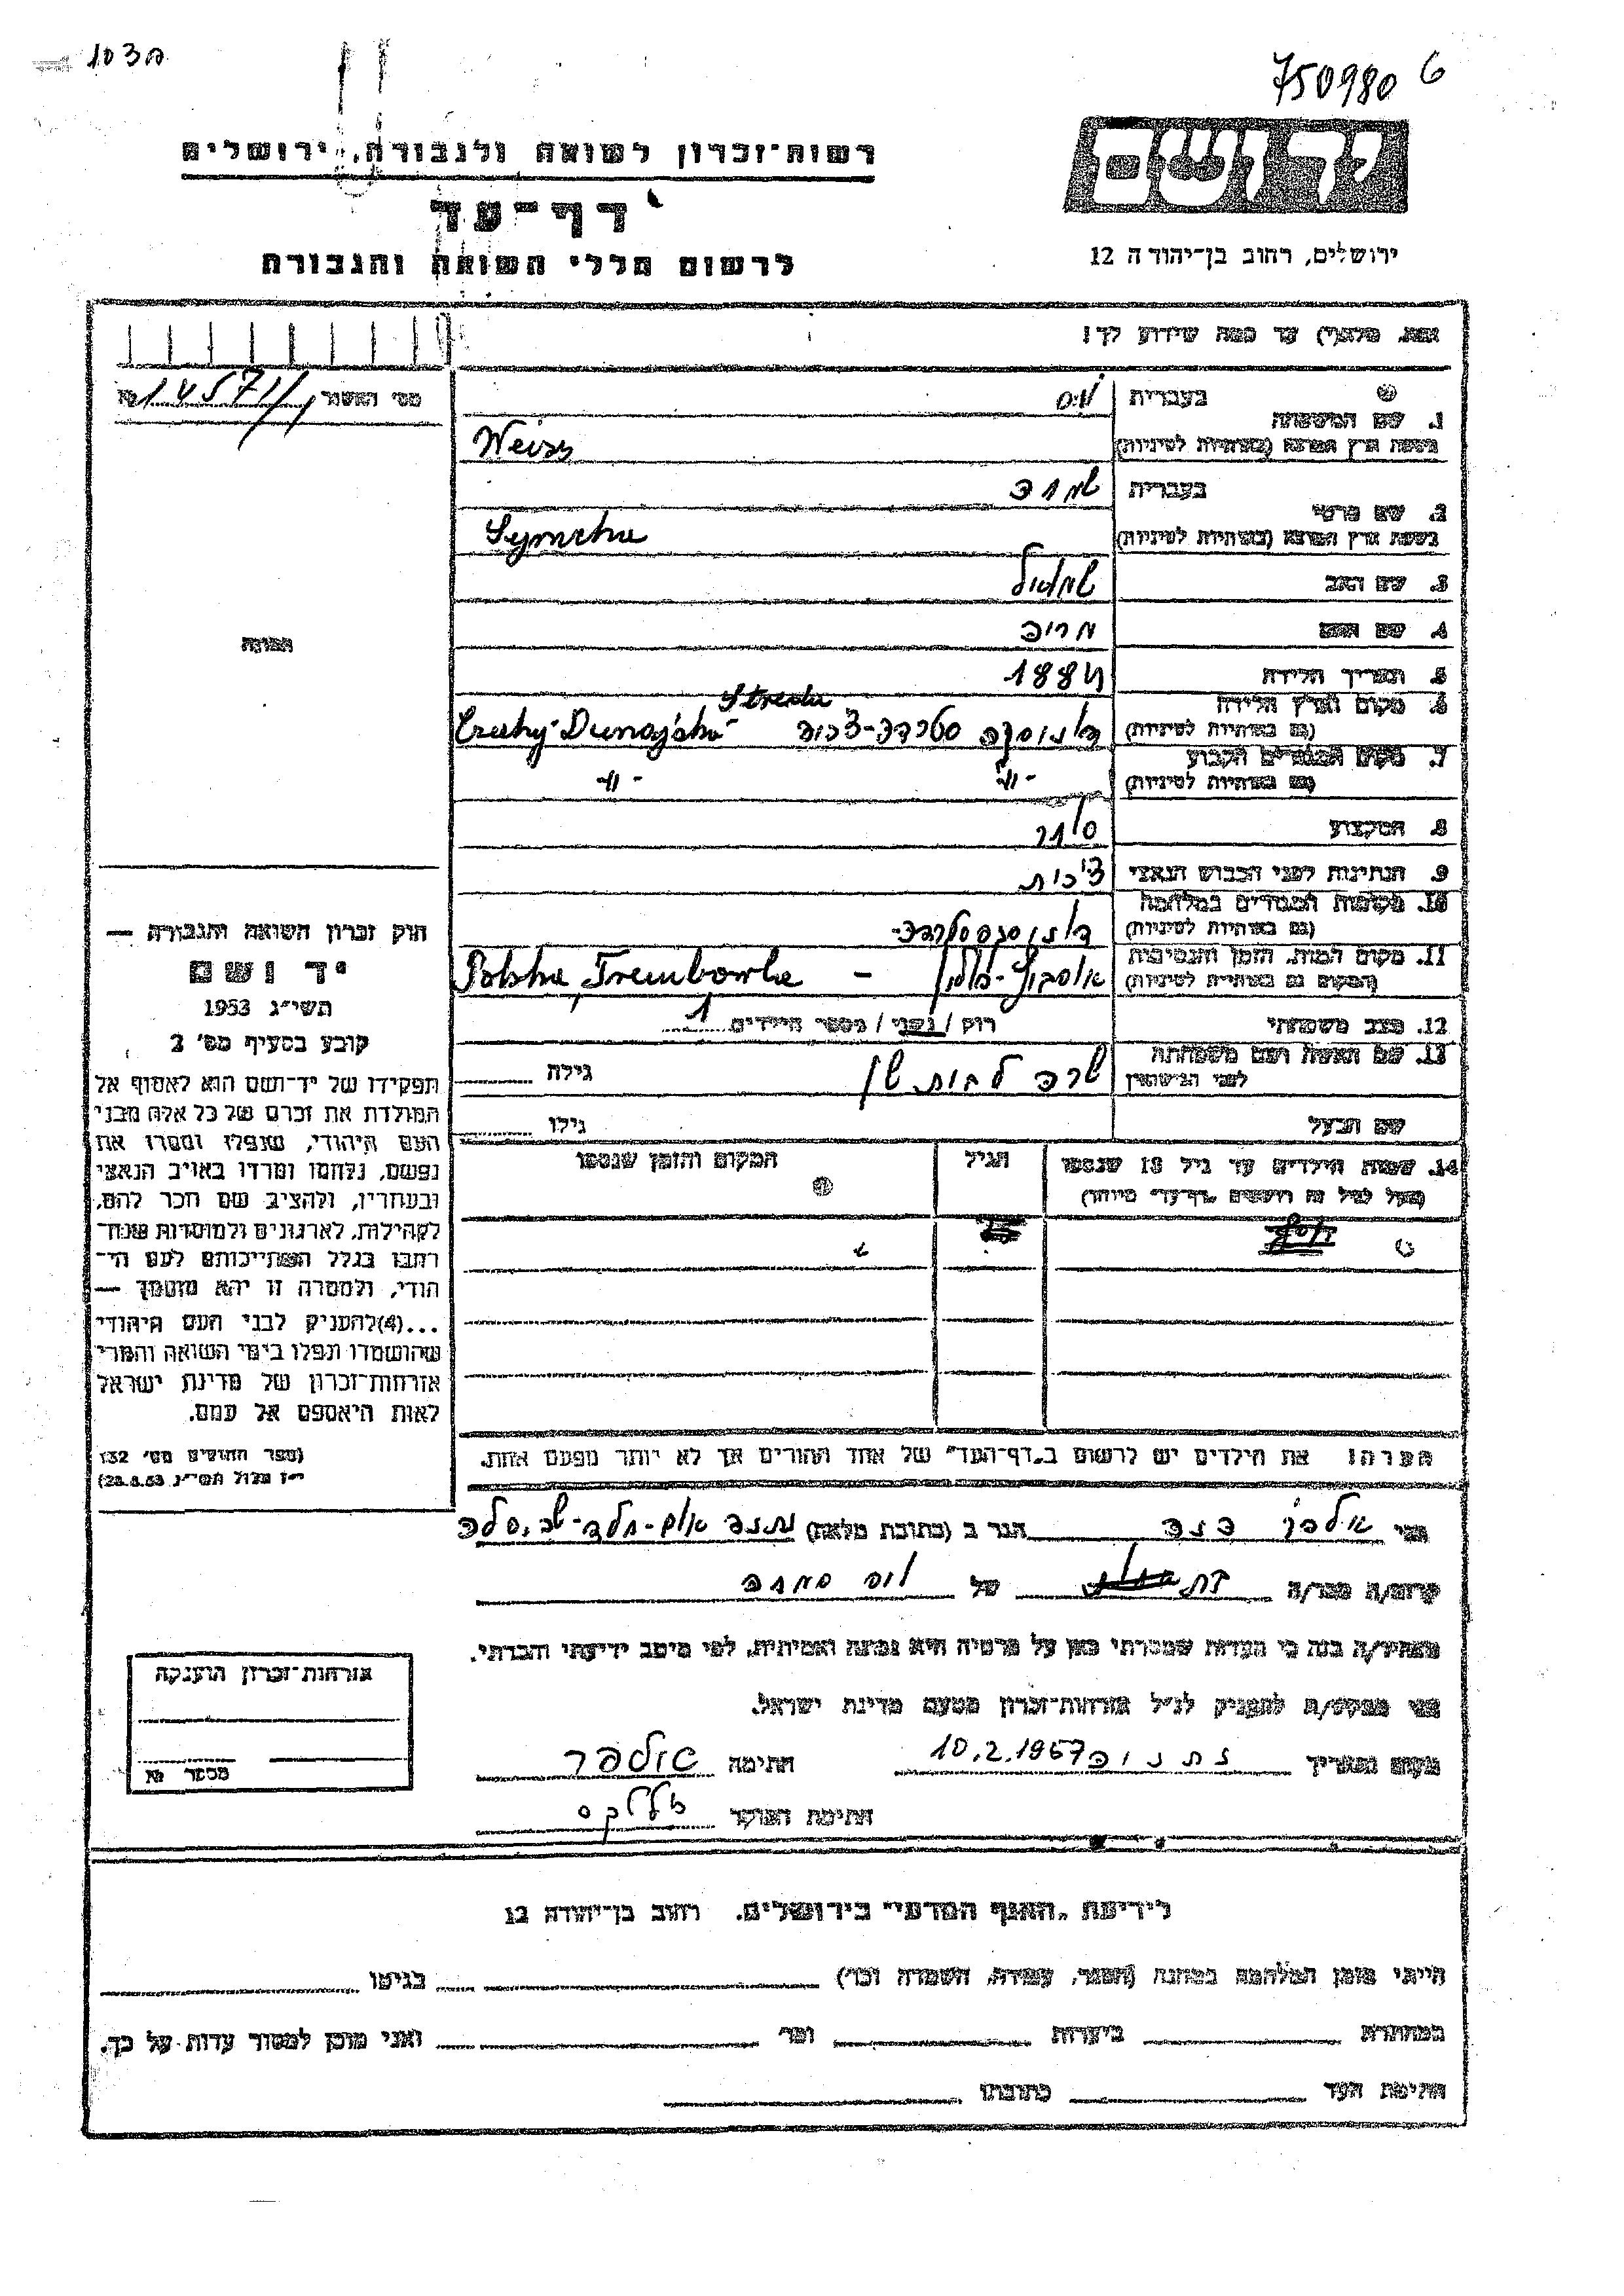 103ה
750980 6
רשות־זכרון לשואה ולגבורה, ירושלים
יד ושם
דף־עד
ירושלים, רחוב בן־יהודה 12
לרשום חללי השואה והגבורה
נא למלא עד כמה שידוע לך!
מס' האשור 14571/1 №
1. שם המשפחה
בעברית וייס
בשפת ארץ המוצא (באותיות לטיניות) Weiss
2. שם פרטי
בעברית
בשפת ארץ המוצא (באותיות לטיניות)
3. שם האב שמואל
4. שם האם
5. תאריך הלידה 1884
6. מקום וארץ הלידה
(גם באותיות לטיניות) דונוסקה סטרדה-צ'כיה Streda
7. מקום המגורים הקבוע
(גם באותיות לטיניות) -"- -"-
8. המקצוע סוחר
9. הנתינות לפני הכבוש הנאצי צ'כית
10. מקומות המגורים במלחמה
(גם באותיות לטיניות)
11. מקום המות, הזמן והנסיבות
(המקום גם באותיות לטיניות) - Polska Trembowla
12. מצב משפחתי רוק / נשוי / מספר הילדים 1
13. שם האשה ושם משפחתה
לפני הנישואין שרה לבית גילה
שם הבעל גילו
14. שמות הילדים עד גיל 18 שנספו
(מעל לגיל זה רושמים "דף־עד" מיוחד)
הגיל
המקום והזמן שנספו
תמונה
חוק זכרון השואה והגבורה —
יד ושם
תשי"ג 1953
קובע בסעיף מס' 2
תפקידו של יד־ושם הוא לאסוף אל
המולדת את זכרם של כל אלה מבני
העם היהודי, שנפלו ומסרו את
נפשם, נלחמו ומרדו באויב הנאצי
ובעוזריו, ולהציב שם וזכר להם,
לקהילות, לארגונים ולמוסדות שנח־
רבו בגלל השתייכותם לעם הי־
הודי, ולמטרה זו יהא מוסמך —
...(4)להעניק לבני העם היהודי
שהושמדו ונפלו בימי השואה והמרי
אזרחות־זכרון של מדינת ישראל
לאות היאספם אל עמם.
(ספר החוקים מס' 132
י"ז אלול תשי"ג 28.8.53)
הערה: את הילדים יש לרשום ב"דף־העד" של אחד ההורים אך לא יותר מפעם אחת.
אני הגר ב (כתובת מלאה)
קרוב/ה מכר/ה בת של
מצהיר/ה בזה כי העדות שמסרתי כאן על פרטיה היא נכונה ואמיתית, לפי מיטב ידיעתי והכרתי.
אני מבקש/ת להעניק לנ"ל אזרחות־זכרון מטעם מדינת ישראל.
מקום ותאריך נתניה 10.2.1957 חתימה
חתימת הפוקד
אזרחות־זכרון הוענקה
מספר №
לידיעת "האגף המדעי" בירושלים. רחוב בן־יהודה 12
הייתי בזמן המלחמה במחנה (הסגר, עבודה, השמדה וכו') בגיטו
במחתרת ביערות וכו' ואני מוכן למסור עדות על כך.
חתימת העד כתובתו